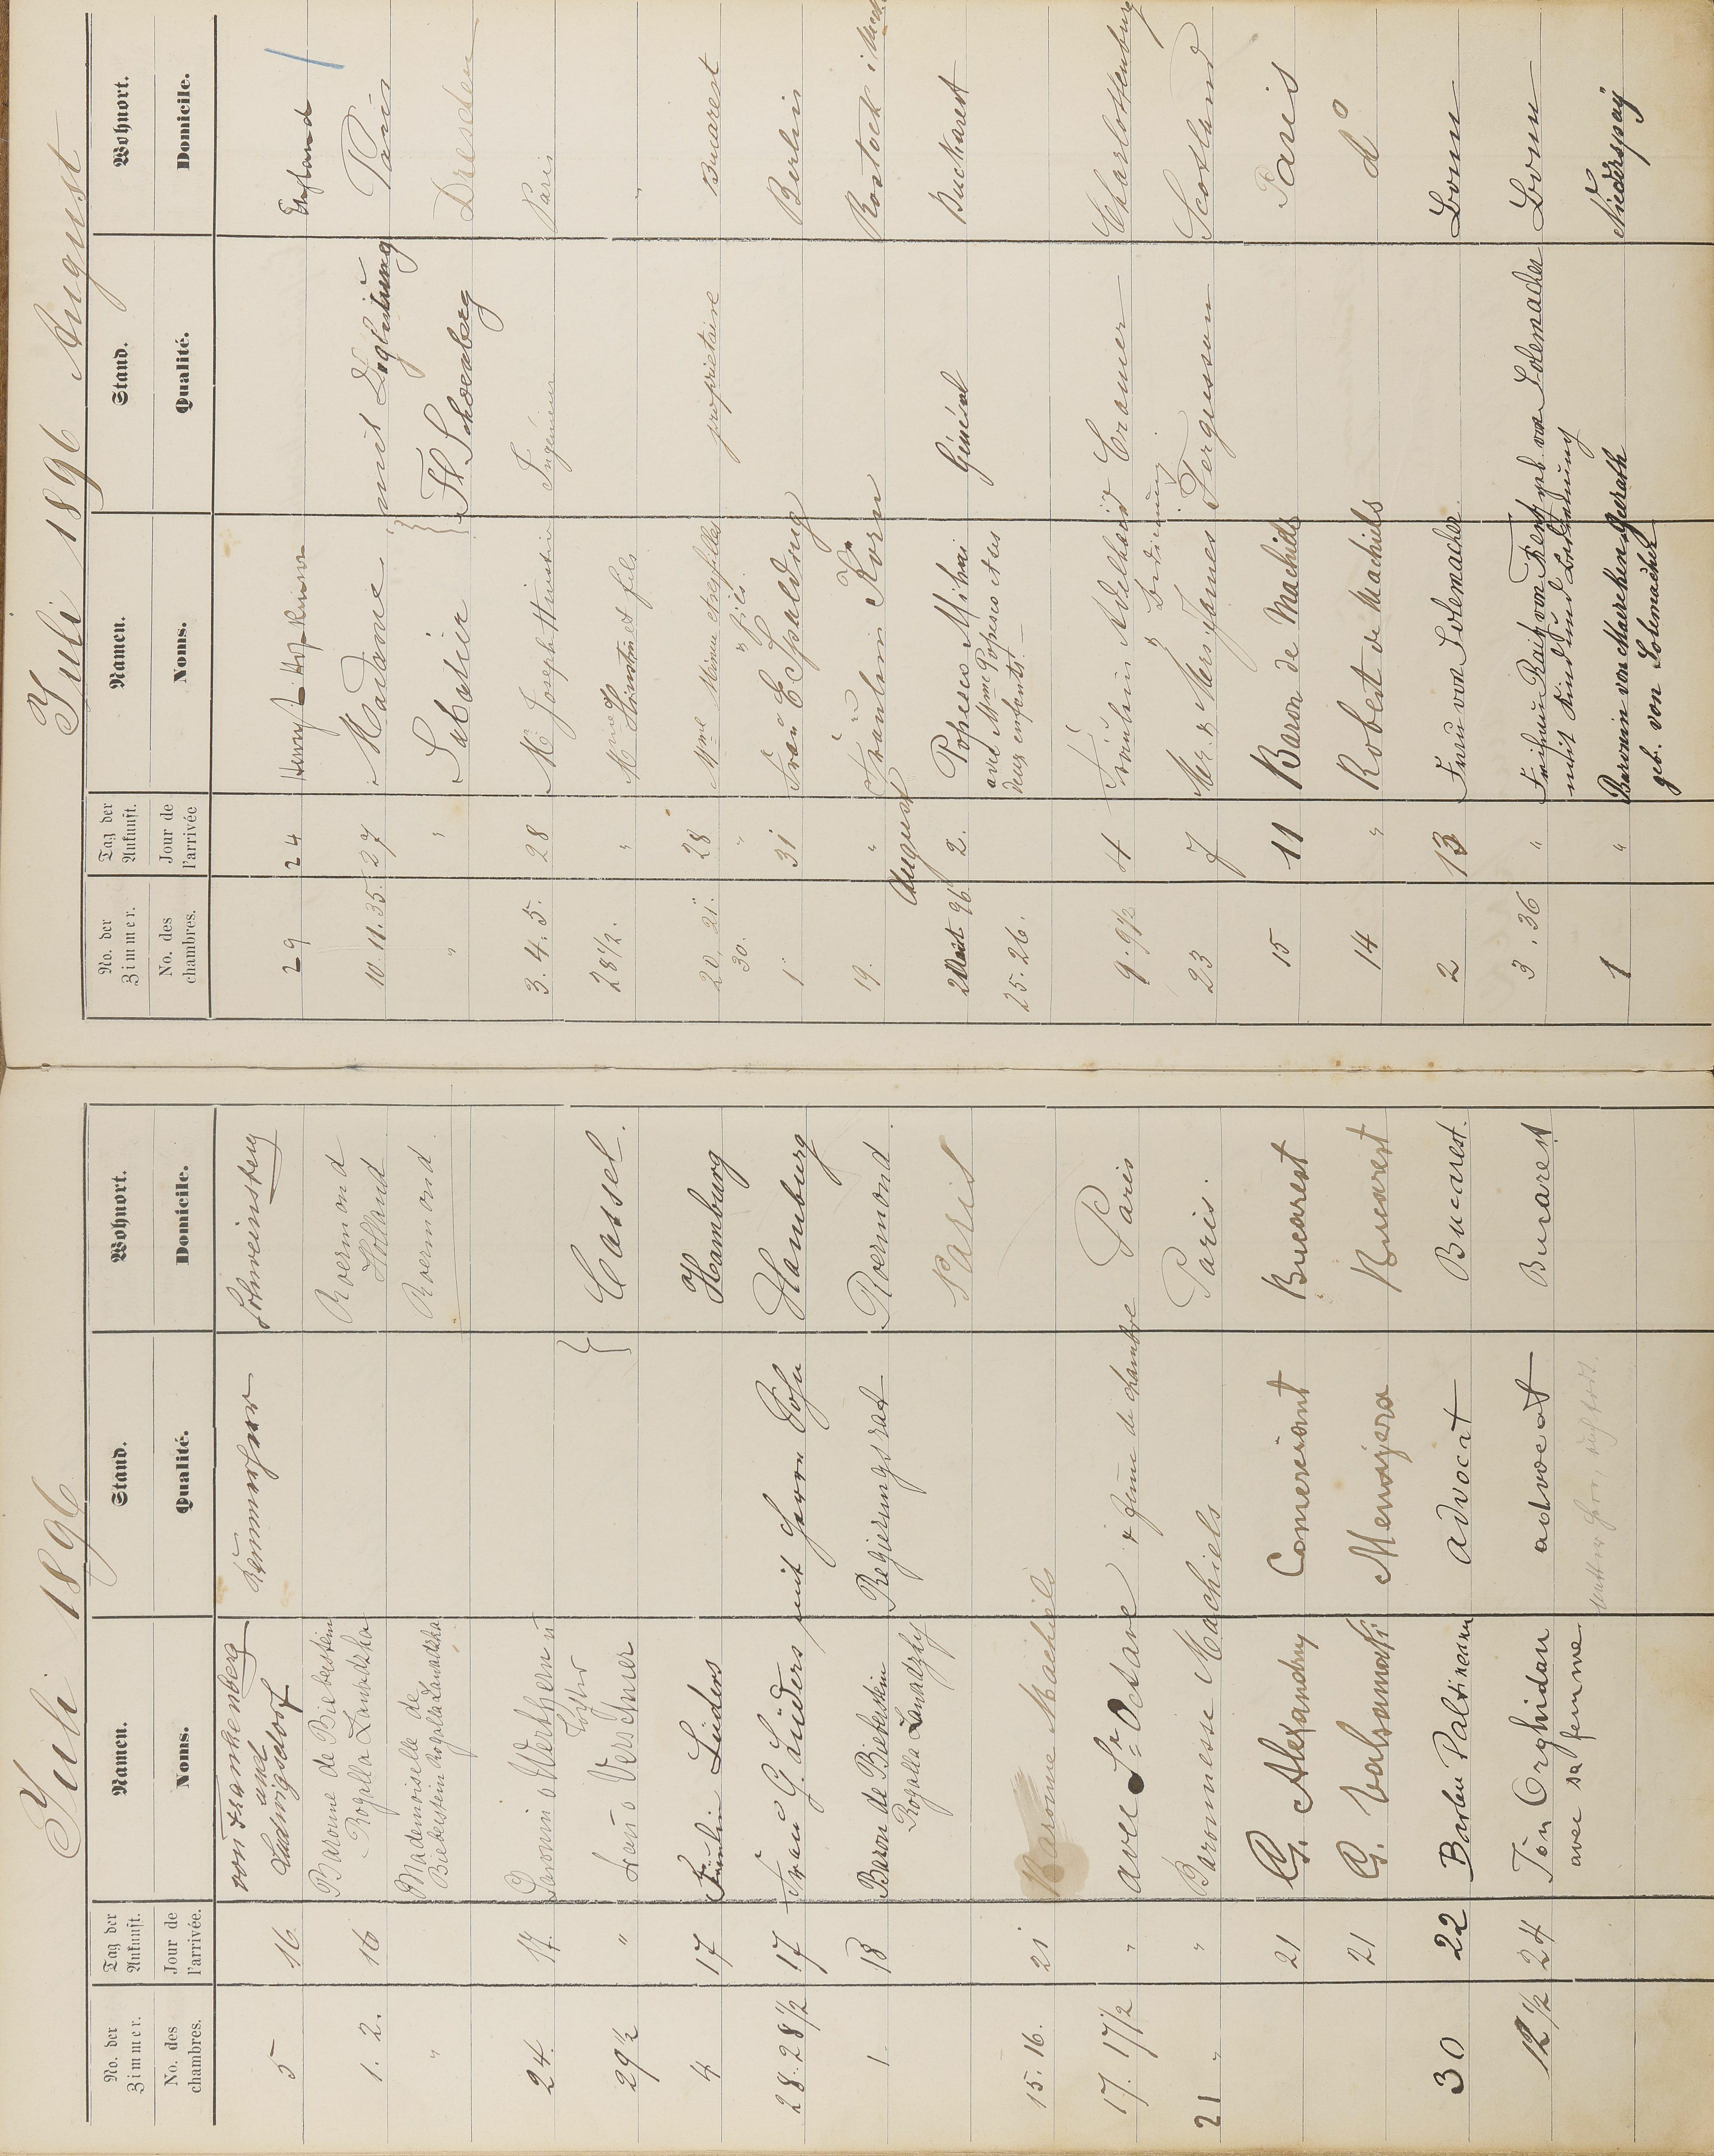 Juli 1896
No. der Zimmer. Tag der Ankunft. Namen. Stand. Wohnort.
No. des chambres. Jour de l'arrivée. Noms. Qualité. Domicile.
5 16 von Frankenberg Kammerherr
und
Ludwigsdorf
1. 2. 16 Baronne de Bieberstein Roermond
Rogalla Zawadzka Holland
" " Mademoiselle de Roermond
Bieberstein Rogalla Zawadzka
24. 17. Baronin v Werthern u
Tochter
29 ½ " Frau v Verschuer Cassel.
4 17 Fräulein Lüders Hamburg
28. 28 ½ 17 Frau G. Lüders mit Herrn Sohn Hamburg
1. 18 Baron de Bieberstein Regierungsrat Roermond
Rogalla Zawadzky
15. 16. 21 Baronne Machiels Paris
17. 17½ " avec Octave & femme de chambre Paris
21 " " Baronesse Machiels Paris.
21 G. Alexandry Comerciant Bucarest
21 G. Bucarest
30 22 Barbu Paltineanu advocat Bucarest.
12 ½ 24 Ion Orghidan advocat Bucarest
avec sa femme
Juli 1896 August
No. der Zimmer. Tag der Ankunft. Namen. Stand. Wohnort.
No. des chambres. Jour de l'arrivée. Noms. Qualité. Domicile.
29 24 England
10. 11. 35. 27 Madame mit Begleitung Paris
" " Sabatier Fl. Schoenberg Dresden
3. 4. 5. 28 Mr Joseph Ingénieur Paris
28½. " Mme et fils "
20. 21. 28 Mme et ses filles proprietaire Bucarest
30. " " fils.
1. 31 Frau E Spalding Berlin
19. " Fräulein Korn Rostock i.
August
96. 2. Popescu Mihai Général Buckarest
25. 26. avec Mme Popescu et ses
deux enfants.
9. 9½ 4 Fräulein Adelheid Cramer Charlottenburg
" Bedienung.
23 7 Mr. & Mrs James Fergusson Scotland
15 11 Baron de Machiels Paris
14 " Robert de Machiels do
2 13 Frau von Solemacher Bonn
3. 36 " Freifrau Raitz von Frentz geb. von Solemacher Bonn
mit Kind und Bedienung
1 " Baronin von Maercken Geerath Niederspay
geb. von Solemacher